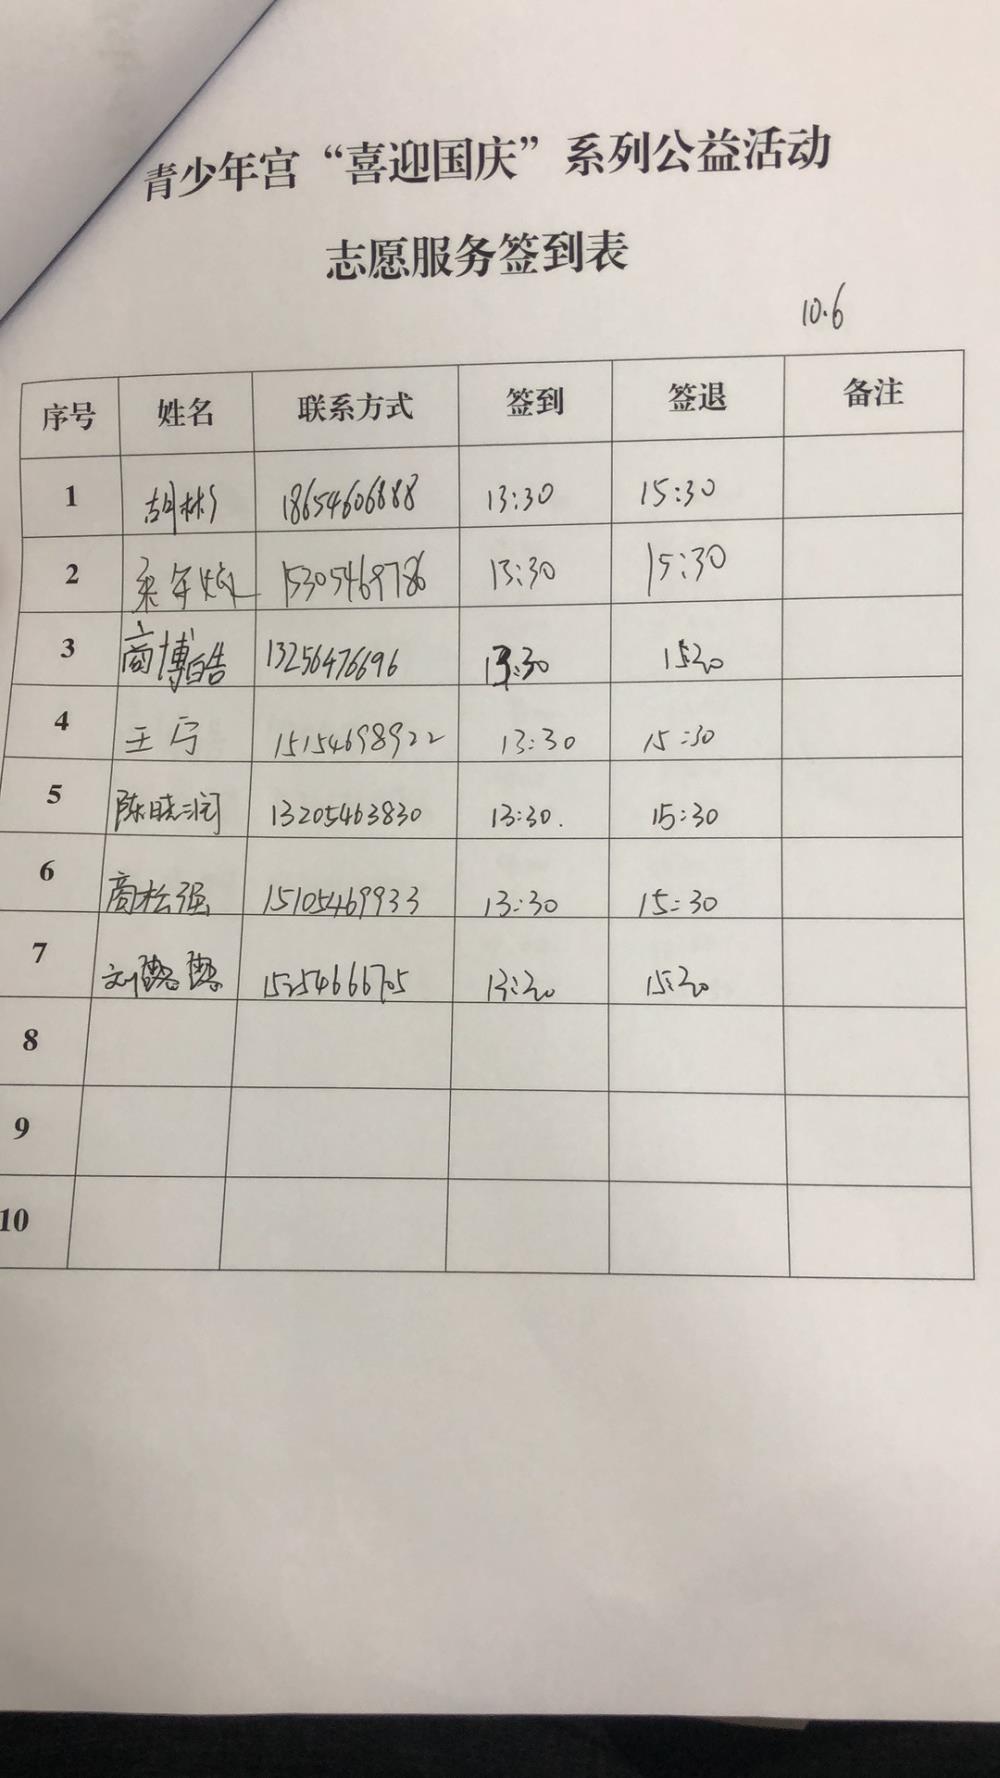 青少年宫“喜迎国庆”系列公益活动
志愿服务签到表
10.6
序号 姓名 联系方式 签到 签退 备注
1 胡彬 18654606888 13:30 15:30
2 15305469786 13:30 15:30
3 商博皓 13256476696 13:30 15:20
4 王 15154698922 13:30 15:30
5 陈晓润 13205463830 13:30. 15:30
6 商松强 15105469933 13:30 15:30
7 刘 15254666705 13:20 15:20
8
9
10